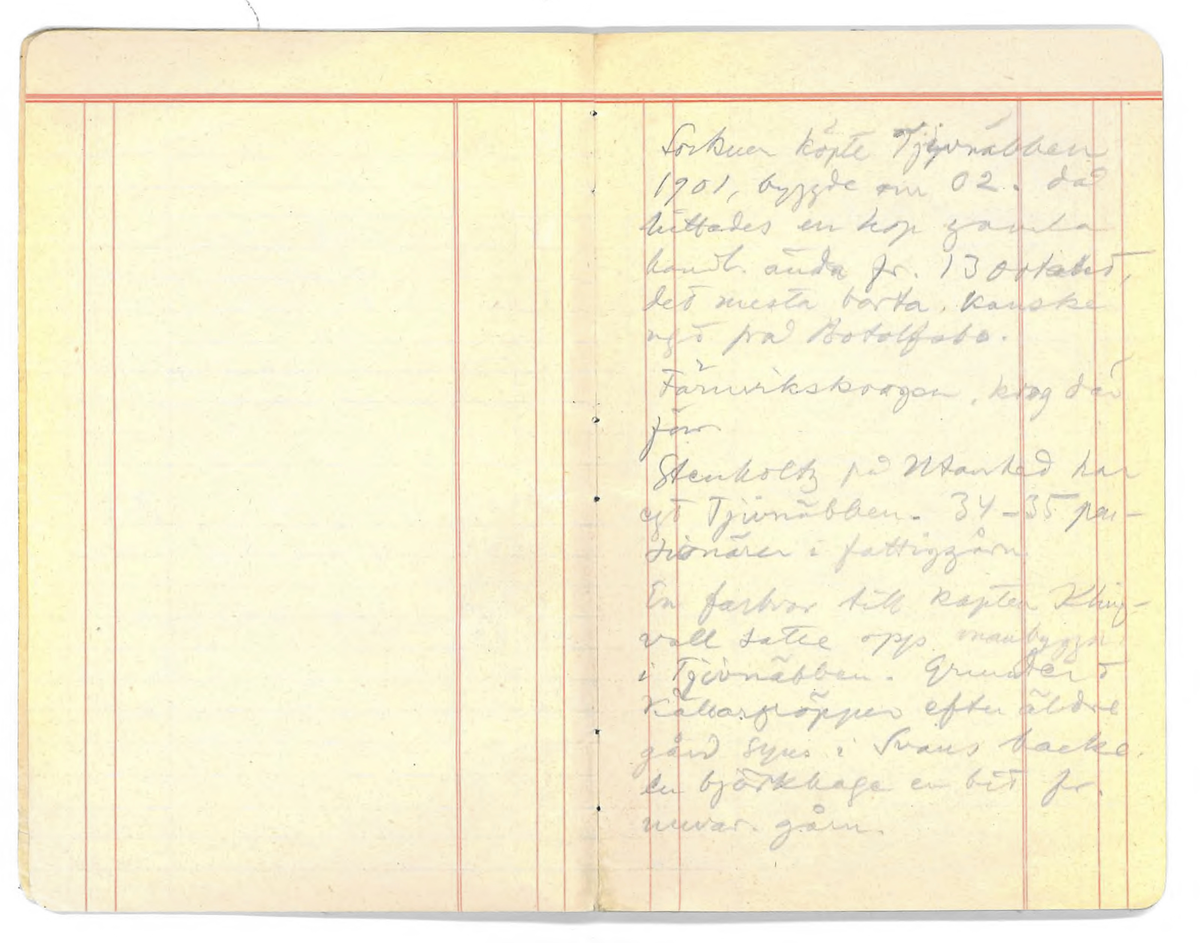 Socknen köpte Tjivnäbben
1901, byggde om 02. då
hittades en hop gamla
handl. ända fr. 1300talet,
det mesta borta, kanske
ngt på Botolfsbo.
Färnvikskrogen, krog där
förr
Stenholtz på Utanhed har
egt Tjivnäbben. 34–35 pen-
sionärer i fattiggårn
En farbror till kapten Kling-
vall satte opp manbyggn
i Tjivnäbben. Grunder o
källargröpper efter äldre
gård syns i Svans backe.
en björkhage en bit fr.
nuvar. gårn.